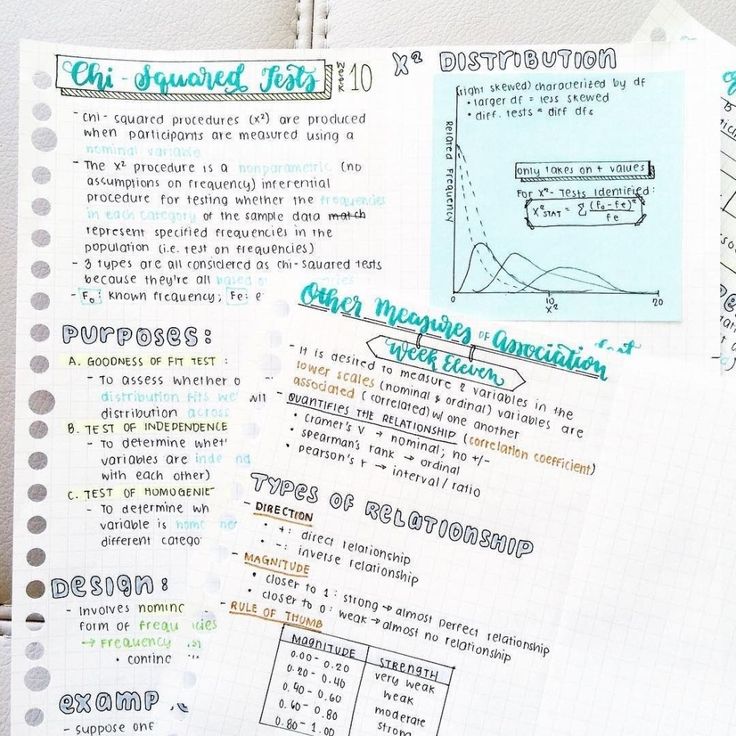 Chi-Squared Tests
Week 10
- chi-squared procedures (x²) are produced
when participants are measured using a
nominal variable
- The x² procedure is a nonparametric (no
assumptions on frequency) inferential
procedure for testing whether the frequencies
in each category of the sample data match
represent specified frequencies in the
population (i.e. test on frequencies)
- 3 types are all considered as chi-squared tests
because they're all based
- Fo: known frequency; Fe:
PURPOSES:
A. GOODNESS OF FIT TEST:
- To assess whether
distribution fits
distribution across
B. TEST OF INDEPENDENCE
- To determine
variables are
with each other)
C. TEST OF
- To determine
variable is
different
DESIGN:
- Involves
form of
→ Frequency
•
- suppose
X² DISTRIBUTION
(right skewed) characterized by df
• larger df = less skewed
• diff. tests = diff dfs
only takes on + values
For x²- Tests identified:
x²STAT = Σ (fo - fe)² / fe
Related Frequency
0
10
20
x²
Other Measures of Association
Week Eleven
- It is desired to measure 2 variables in the
lower scales (nominal & ordinal) variables are
associated (correlated) w/ one another
- QUANTIFIES THE RELATIONSHIP (correlation coefficient)
• cramer's V → nominal; no +/-
• spearman's rank → ordinal
• pearson's r → interval/ratio
TYPES OF RELATIONSHIP
- DIRECTION
• +: direct relationship
• -: inverse relationship
- MAGNITUDE
• closer to 1: strong → almost perfect relationship
• closer to 0: weak → almost no relationship
- RULE OF THUMB
MAGNITUDE STRENGTH
0.00 - 0.20 very weak
0.20 - 0.40 weak
0.40 - 0.60 moderate
0.60 - 0.80 strong
0.80 - 1.00